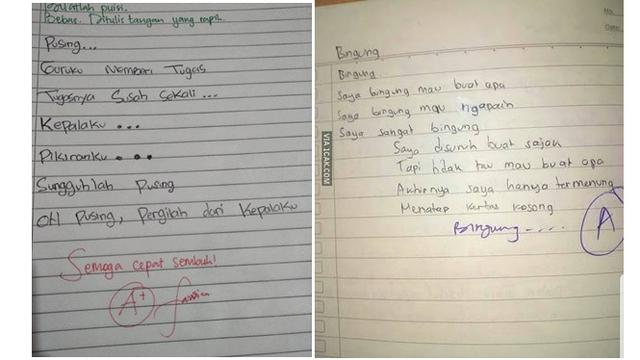 puisi.
Bebas. Ditulis tangan yang rapi.
Pusing...
Guruku Memberi Tugas
Tugasnya Susah Sekali...
Kepalaku...
Pikiranku...
Sungguhlah Pusing
Oh Pusing, Pergilah dari Kepalaku
Semoga cepat sembuh!
A+
Bingung
Bingung
Saya bingung mau buat apa
Saya bingung mau ngapain
Saya sangat bingung
Saya disuruh buat sajak
Tapi tidak tau mau buat apa
Akhirnya saya hanya termenung
Menatap kertas kosong
Bingung.....
A
VIA 1CAK.COM
No.
Date